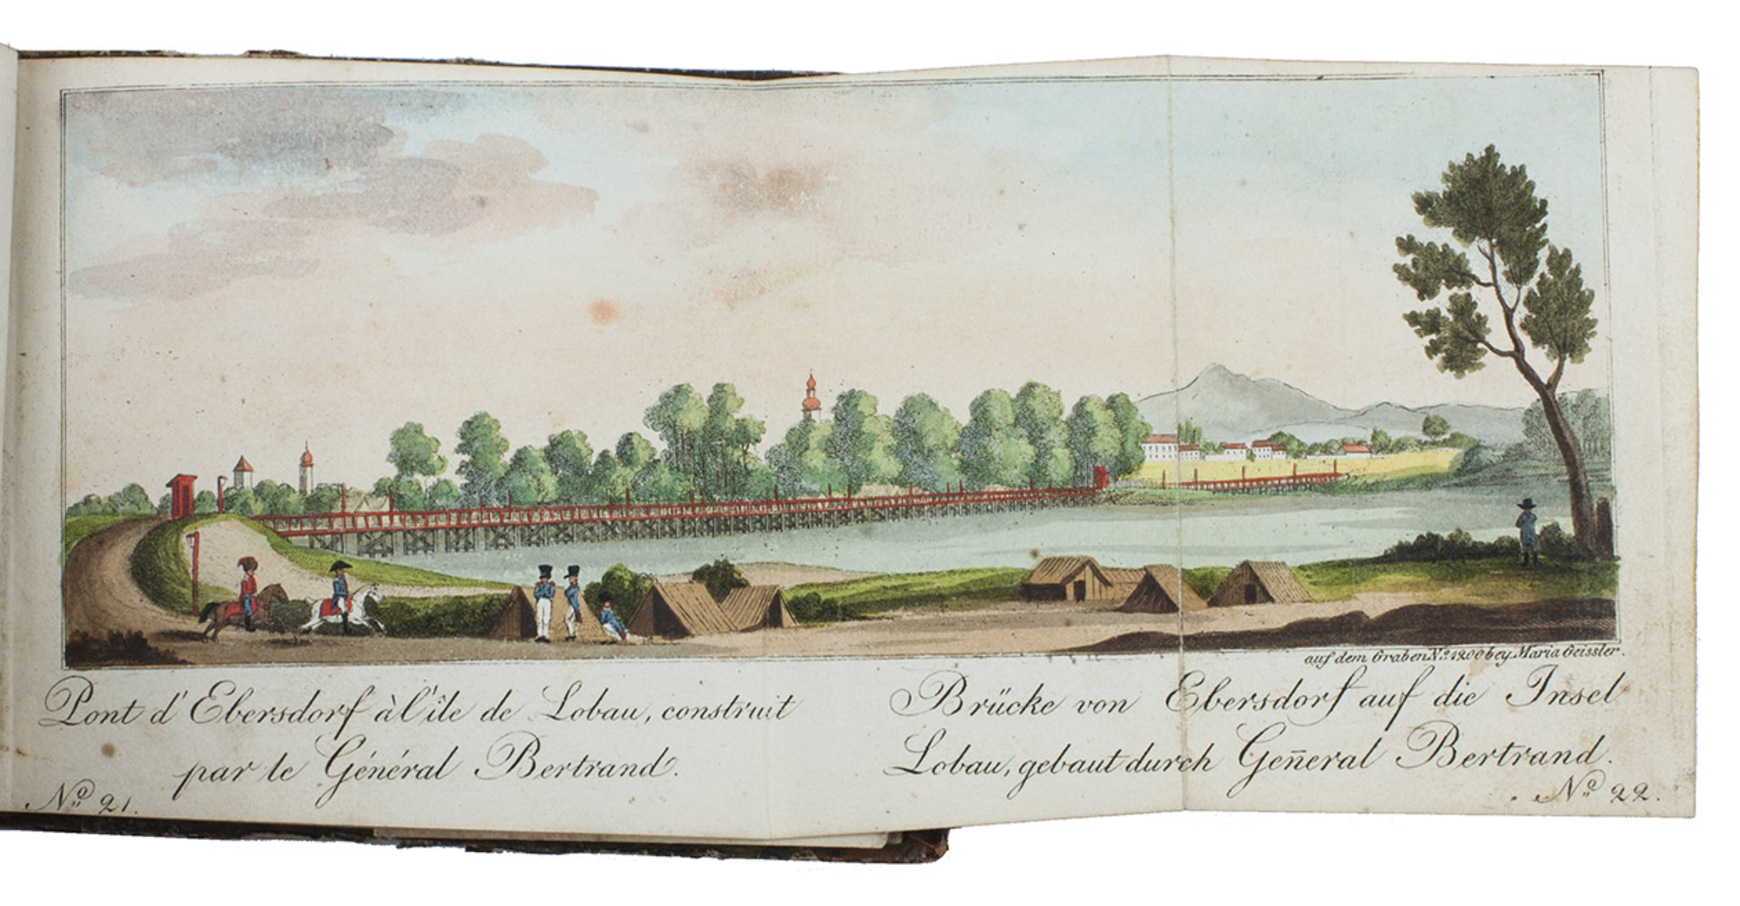 auf dem Graben N.º 1200 bey Maria Geissler.
Pont d'Ebersdorf à l'île de Lobau, construit
par le Général Bertrand.
Nº 21.
Brücke von Ebersdorf auf die Insel
Lobau, gebaut durch Gen̄eral Bertrand.
Nº 22.